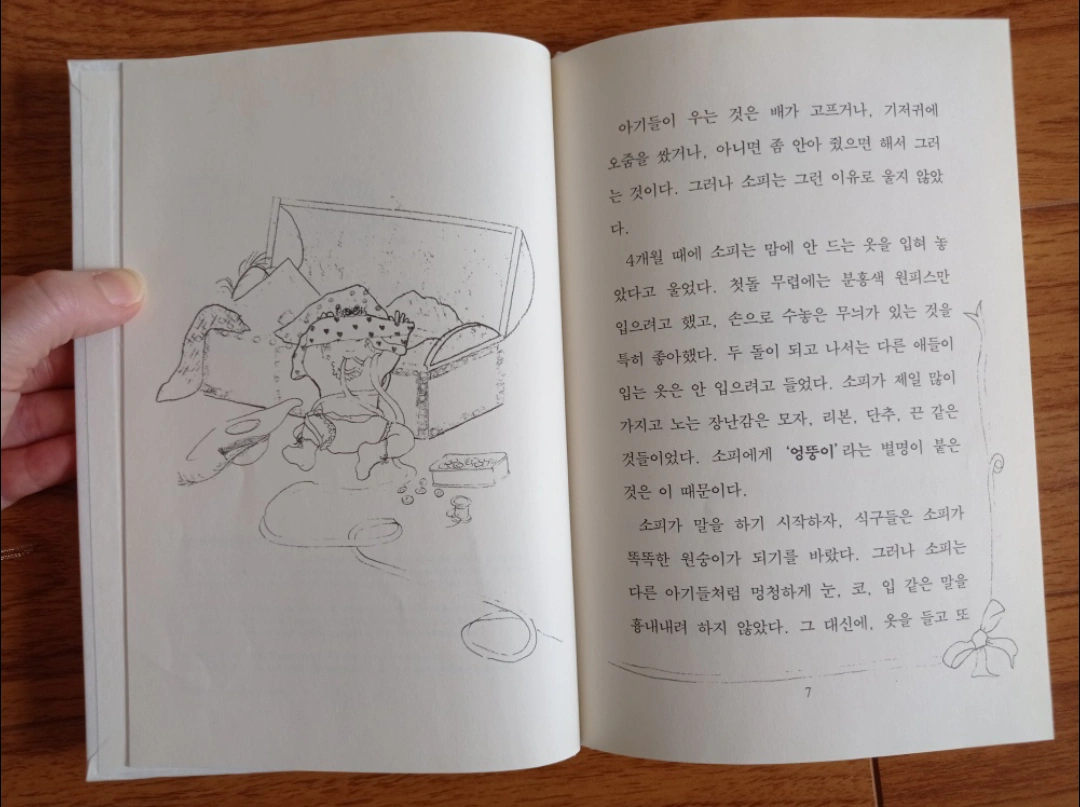 아기들이 우는 것은 배가 고프거나, 기저귀에
오줌을 쌌거나, 아니면 좀 안아 줬으면 해서 그러
는 것이다. 그러나 소피는 그런 이유로 울지 않았
다.
4개월 때에 소피는 맘에 안 드는 옷을 입혀 놓
았다고 울었다. 첫돌 무렵에는 분홍색 원피스만
입으려고 했고, 손으로 수놓은 무늬가 있는 것을
특히 좋아했다. 두 돌이 되고 나서는 다른 애들이
입는 옷은 안 입으려고 들었다. 소피가 제일 많이
가지고 노는 장난감은 모자, 리본, 단추, 끈 같은
것들이었다. 소피에게 '엉뚱이'라는 별명이 붙은
것은 이 때문이다.
소피가 말을 하기 시작하자, 식구들은 소피가
똑똑한 원숭이가 되기를 바랐다. 그러나 소피는
다른 아기들처럼 멍청하게 눈, 코, 입 같은 말을
흉내내려 하지 않았다. 그 대신에, 옷을 들고 또
7